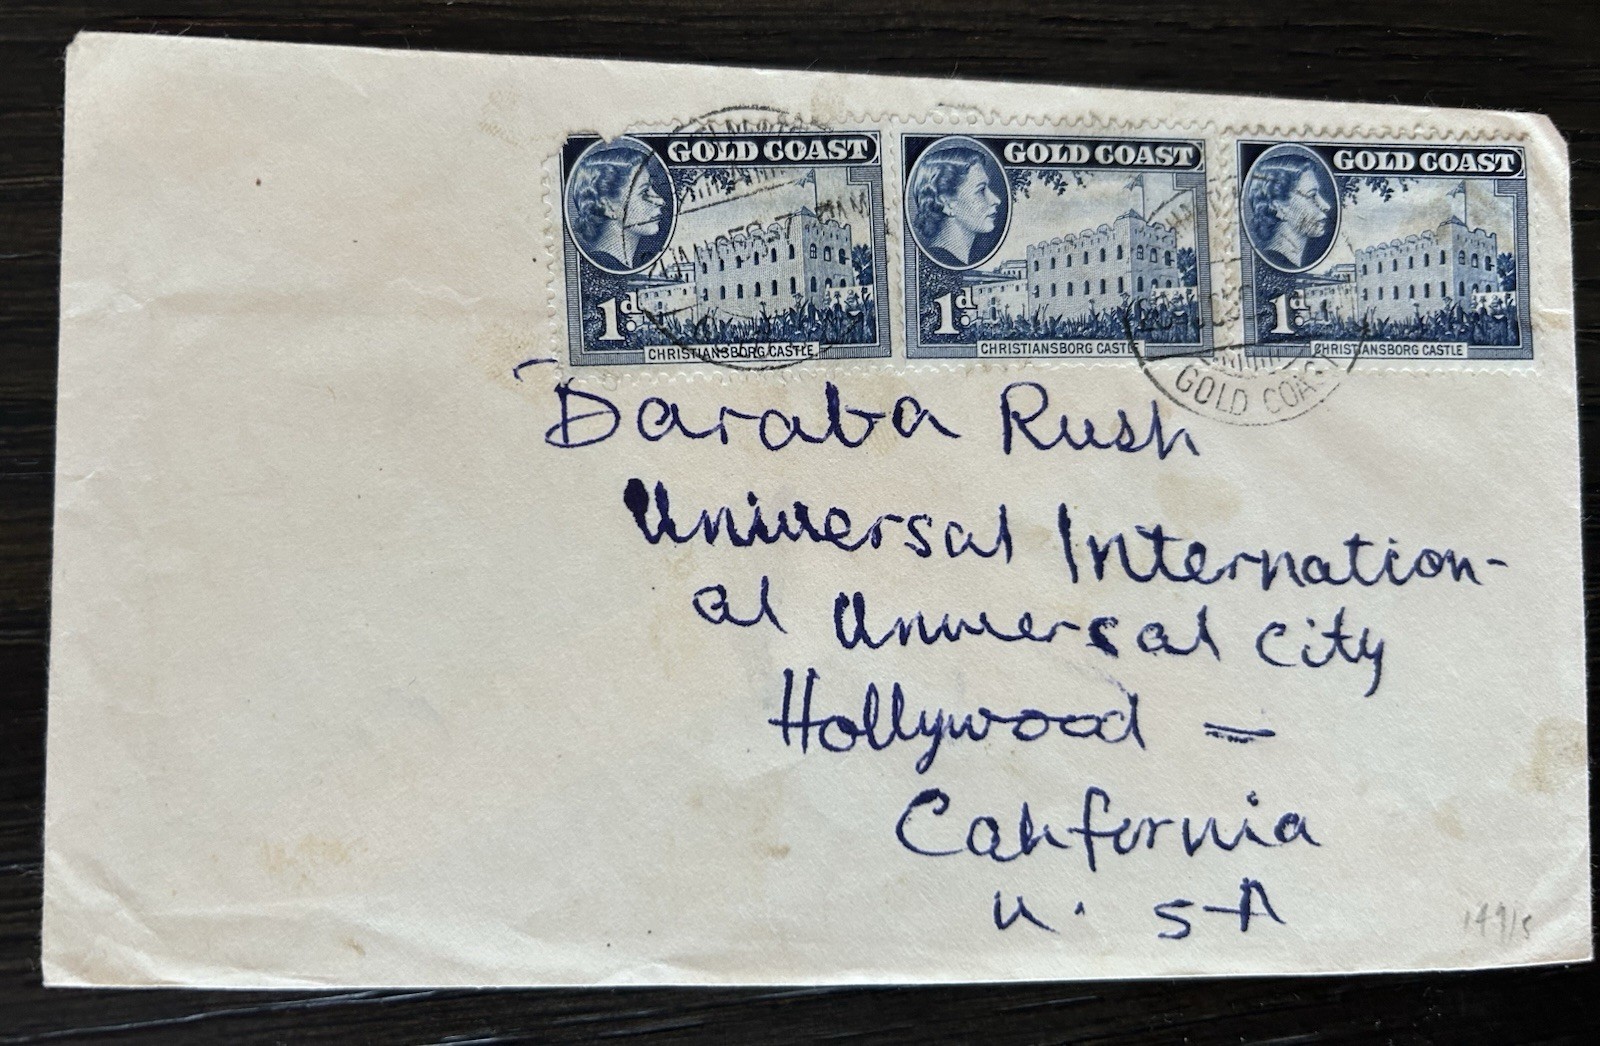 GOLD COAST GOLD COAST GOLD COAST
1d 1d 1d
CHRISTIANSBORG CASTLE CHRISTIANSBORG CASTLE CHRISTIANSBORG CASTLE
GOLD COAST
Daraba Rush
Universal Internation-
al Universal City
Hollywood =
California
U. SA